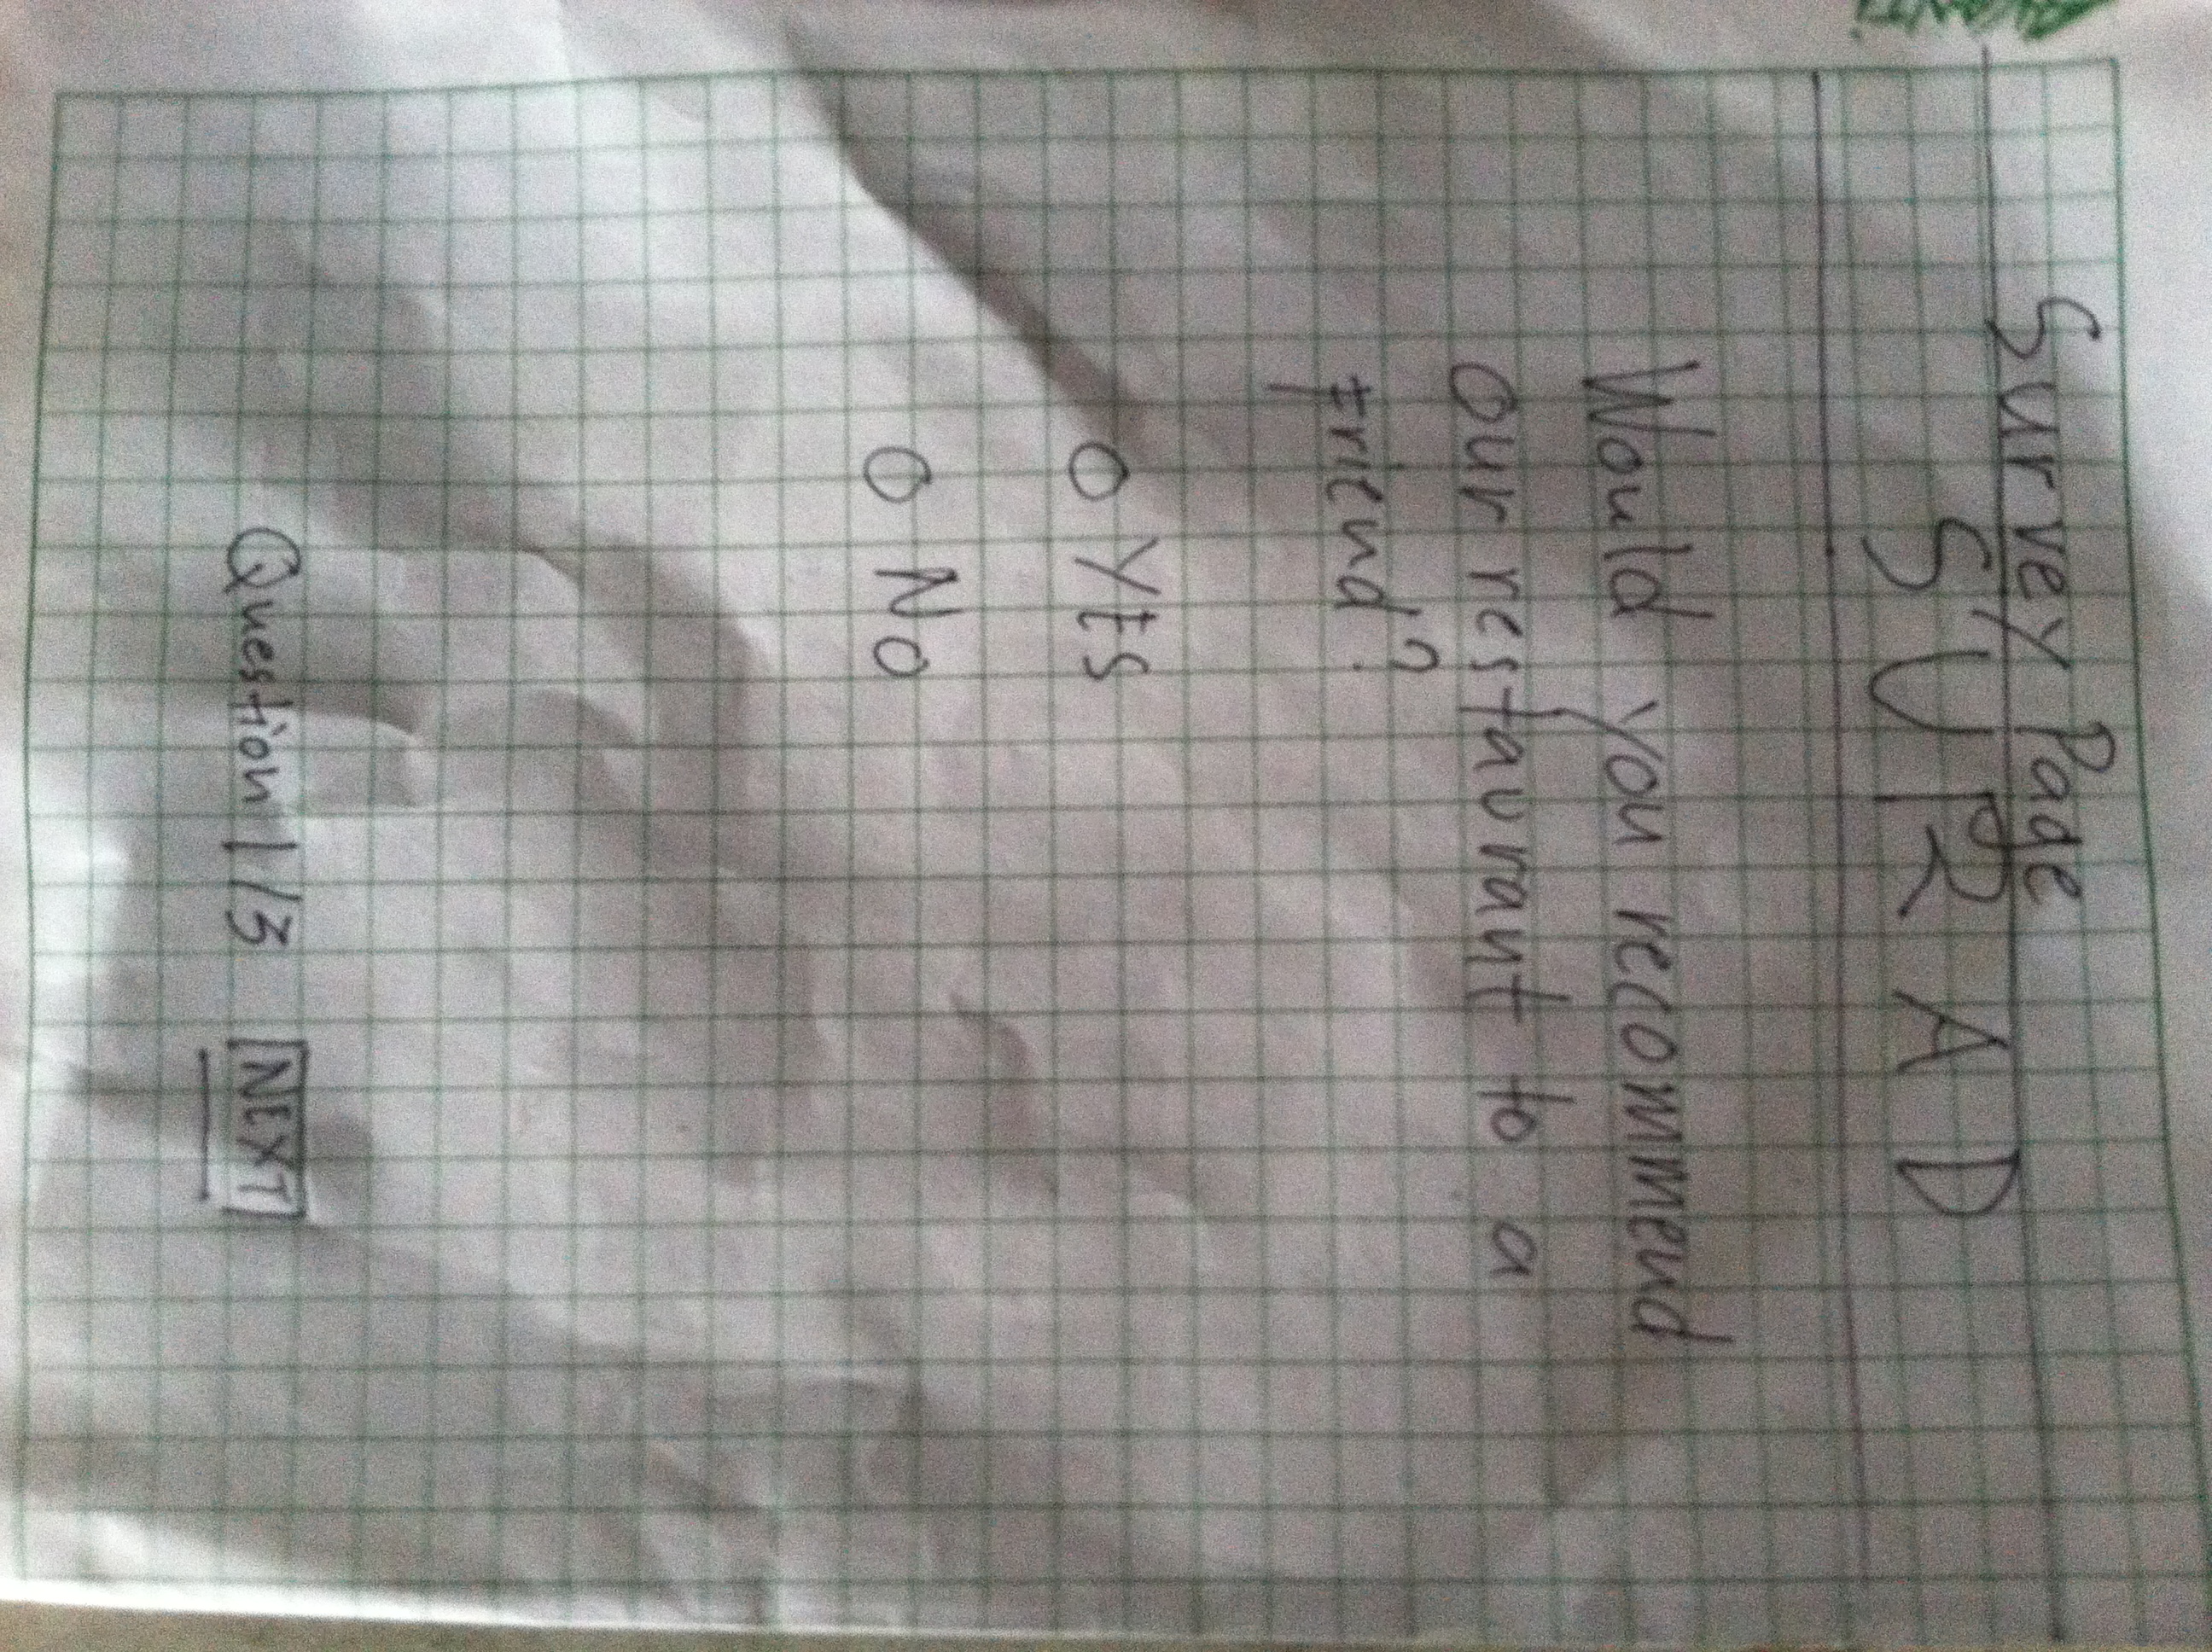 Survey Page
SURAD
Would you recommend
our restaurant to a
friend?
O YES
O NO
Question 1/3 NEXT
AVANTI